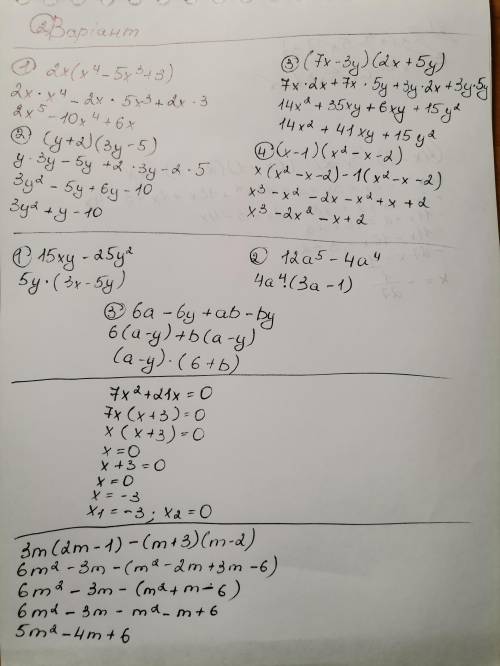 2 Варіант
① 2x(x⁴-5x³+3)
2x·x⁴-2x·5x³+2x·3
2x⁵-10x⁴+6x
② (y+2)(3y-5)
y·3y-5y+2·3y-2·5
3y²-5y+6y-10
3y²+y-10
③ (7x-3y)(2x+5y)
7x·2x+7x·5y+3y·2x+3y·5y
14x²+35xy+6xy+15y²
14x²+41xy+15y²
④ (x-1)(x²-x-2)
x(x²-x-2)-1(x²-x-2)
x³-x²-2x-x²+x+2
x³-2x²-x+2
① 15xy-25y²
5y·(3x-5y)
② 12a⁵-4a⁴
4a⁴·(3a-1)
③ 6a-6y+ab-by
6(a-y)+b(a-y)
(a-y)·(6+b)
7x²+21x=0
7x(x+3)=0
x(x+3)=0
x=0
x+3=0
x=0
x=-3
x1=-3; x2=0
3m(2m-1)-(m+3)(m-2)
6m²-3m-(m²-2m+3m-6)
6m²-3m-(m²+m-6)
6m²-3m-m²-m+6
5m²-4m+6